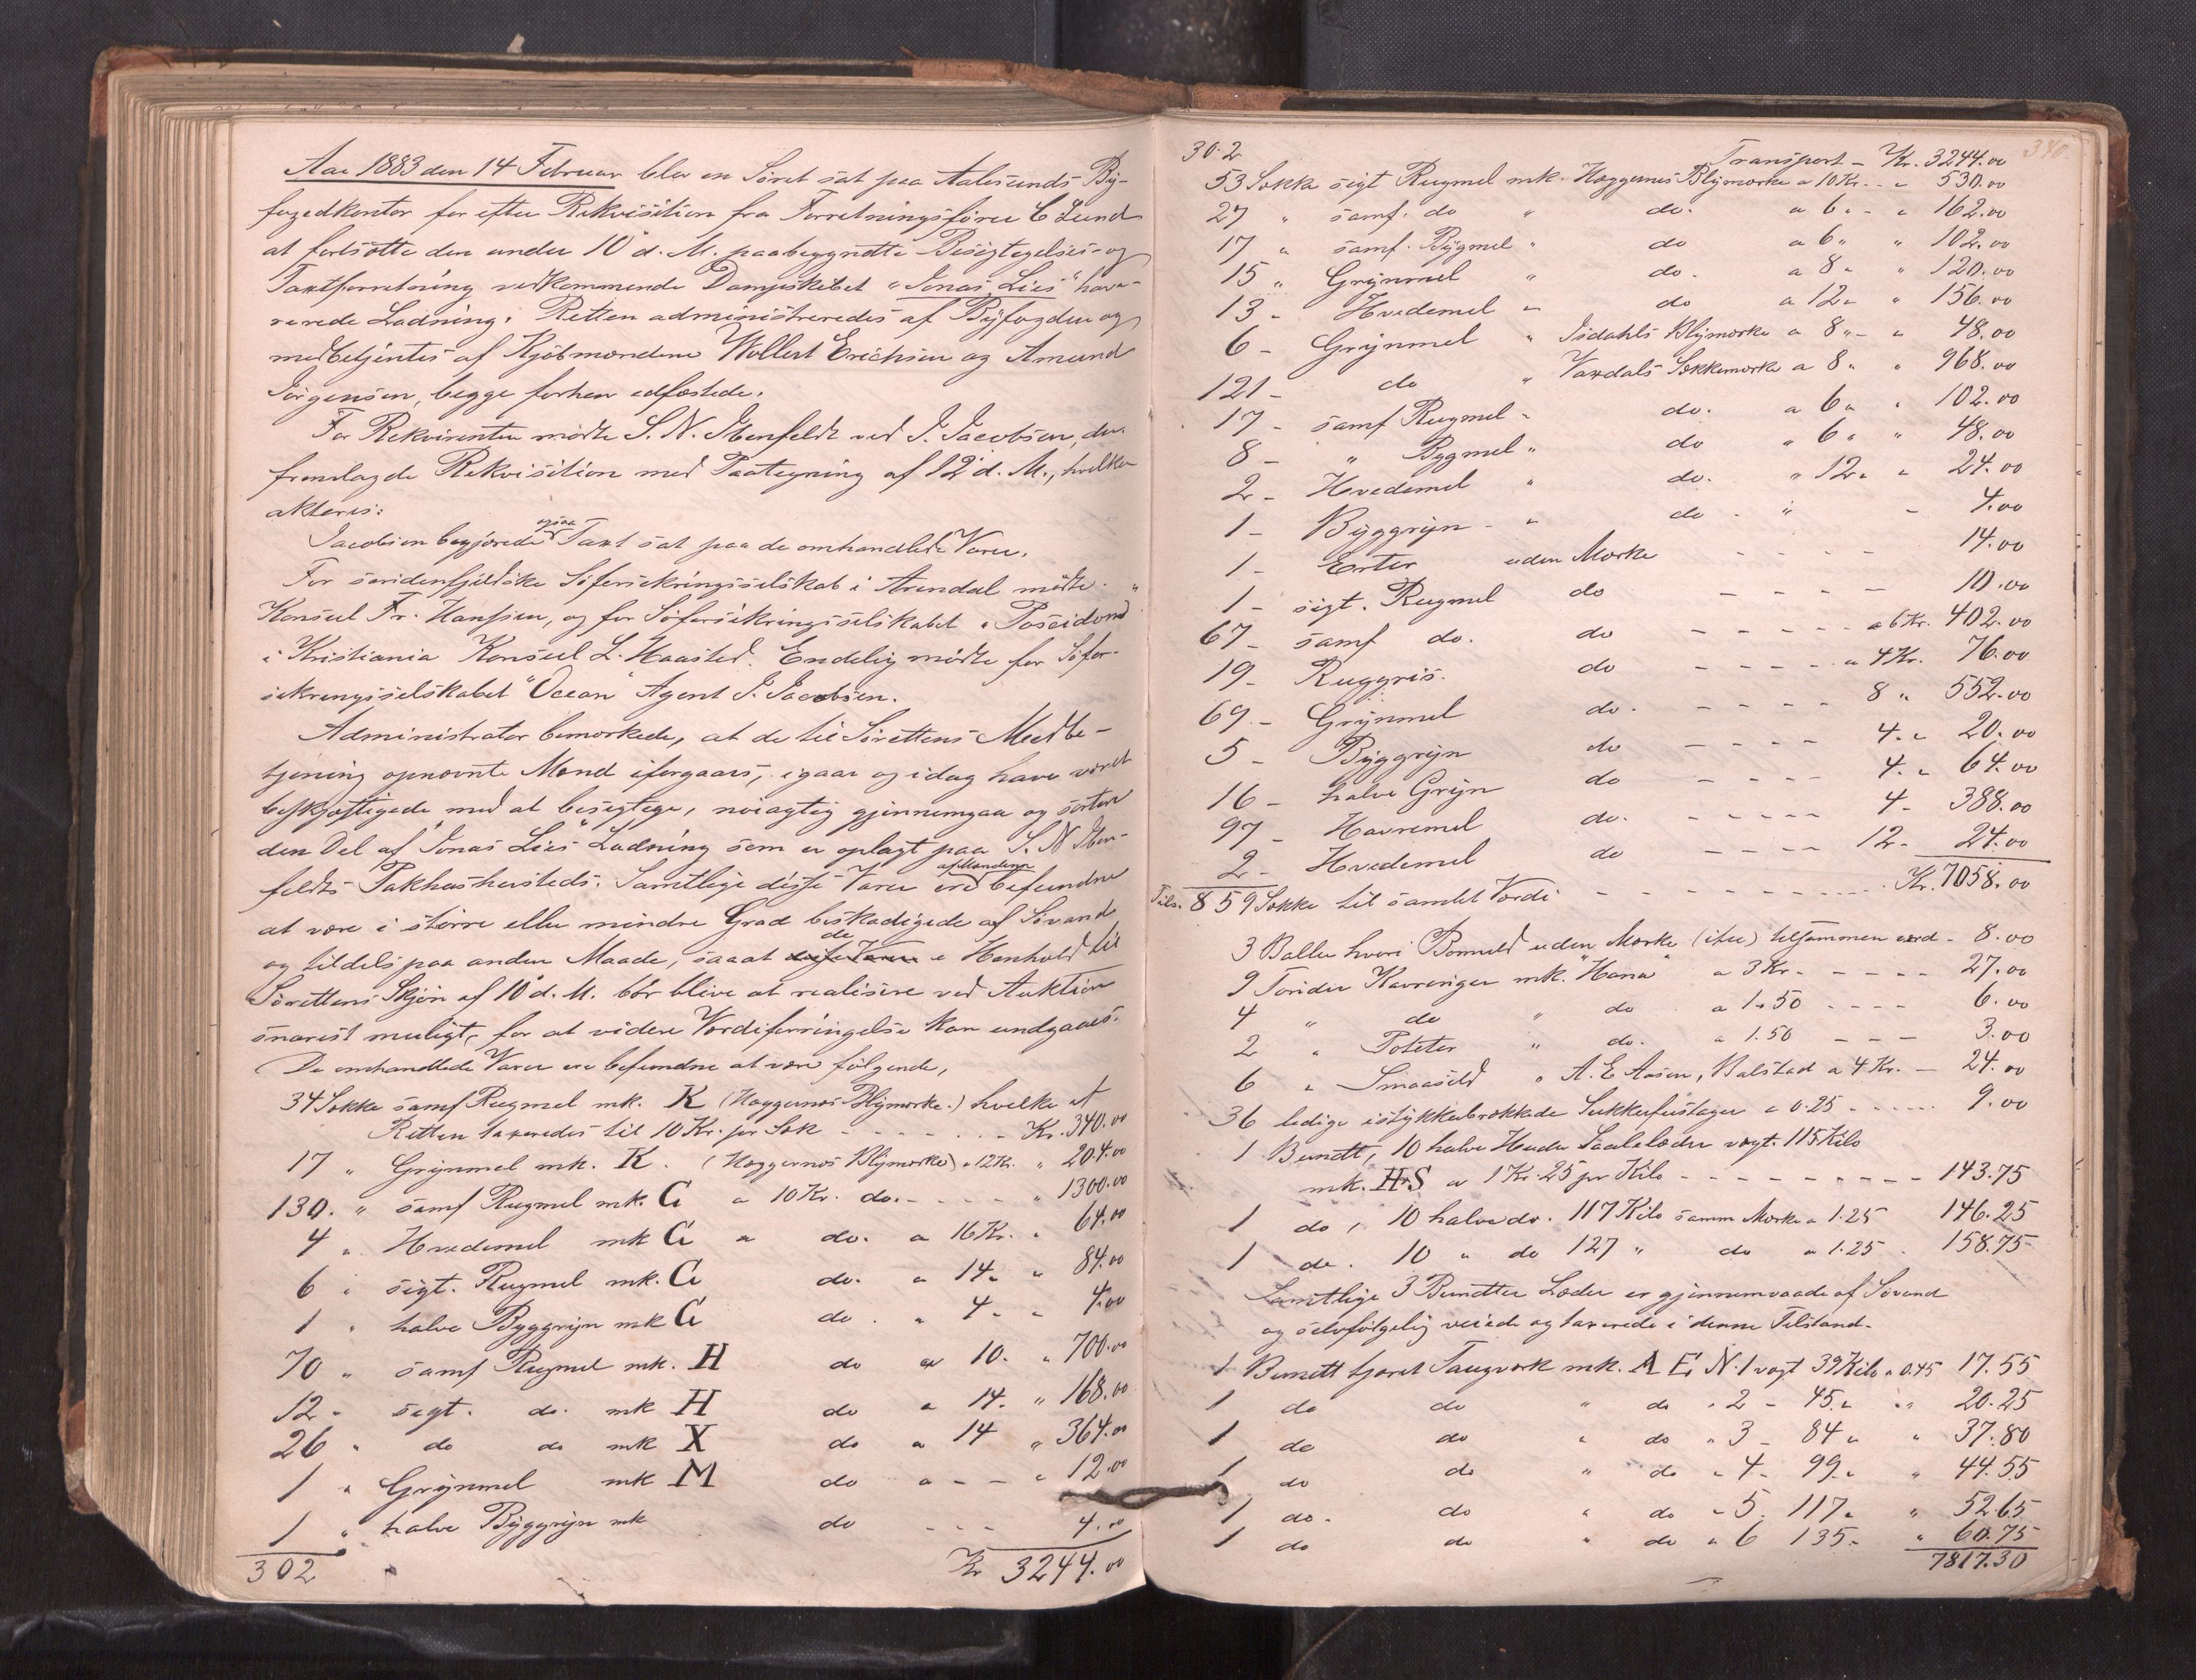 Aar 1883 den 14 Februar blev en Söret sat paa Aalesunds By-
fogedkontor for efter Rekvisition fra Forretningsförer C Lund
at fortsætte den under 10 d. M. paabegyndte Besigtegelses- og
Taxtforretning vedkommende Dampskibet "Jonas Lies" hava-
rerede Ladning. Retten administreredes af Byfogden og
medbetjentes af Kjöbmændene Wollert Erichsen og Amund
Jörgensen, begge forhen edfæstede.
For Rekvirenten mödte S. N. Ibenfeldt ved J. Jacobsen, der
fremlagde Rekvisition med Paategning af 12 d. M., hvilke
akteres:
Jacobsen begjærede ogsaa Taxt sat paa de omhandlede Varer.
For söndenfjeldske Söforsikringsselskab i Arendal mödte
Konsul Fr. Hanssen, og for Söforsikringsselskabet "Poseidon"
i Kristiania Konsul L. Kaasted. Endelig mödte for Söfor-
sikringsselskabet "Ocean" Agent J. Jacobsen.
Administrator bemærkede, at de til Sörettens Medbe-
tjening opnævnte Mænd iforgaars, igaar og idag have været
beskjæftigede med at besigtege, nöiagtig gjennemgaa og sortere
den Del af "Jonas Lies" Ladning som er oplagt paa S. N Iben-
feldts Pakhus hersteds. Samtlige disse Varer ere af Mændene befundne
at være i större eller mindre Grad beskadigede af Sövand
og tildels paa anden Maade, saaat de disse Varer i Henhold til
Sörettens Skjön af 10 d. M. bör blive at realisere ved Auktion
snarest muligt, for at videre Værdiforringelse kan undgaaes.
De omhandlede Varer ere befundne at være fölgende,
34 Sække samf Rugmel mk. K (Haggernæs Blymærke.) hvilke af
Retten taxeredes til 10 Kr. pr Sæk - - - - Kr. 340.00
17 " Grynmel mk. K. (Haggernæs Blymærke) a 12 Kr. " 204.00
130. " samf Rugmel mk. G a 10 Kr. do. - - - - " 1300.00
4 " Hvedemel mk G a do. a 16 Kr. " 64.00
6 " sigt. Rugmel mk. G do. a 14 " " 84.00
1 " halve Byggryn mk G do. " 4 - " 4.00
70 " samf Rugmel mk. H do a 10. " 700.00
12 " sigt. do. mk H do a 14. " 168.00
26 " do do mk X do a 14 " 364.00
1 " Grynmel mk M do a - - " 12.00
1 " halve Byggryn mk do - - - 4.00
302 Kr 3244.00
340.
302 Transport - Kr. 3244.00
53 Sække sigt Rugmel mk. Haggernæs Blymærke a 10 Kr. - " 530.00
27 " samf. do " do. a 6 " - " 162.00
17 " samf. Bygmel " do a 6 " " 102.00
15 " Grynmel " do. a 8 " " 120.00
13 - Hvedemel " do a 12 " " 156.00
6 - Grynmel " Isdahls Blymærke a 8 " - " 48.00
121 - do " Vaxdals Sækkemærke a 8 " " 968.00
17 - samf Rugmel " do. a 6 " " 102.00
8 - " Bygmel " do " 6 " " 48.00
2 - Hvedemel " do. " 12 " " 24.00
1 - Byggryn - " do - " - 4.00
1 - Erter uden Mærke - - - - 14.00
1 - sigt. Rugmel do - - - - 10.00
67 - samf do. do - - - - - a 6 Kr. 402.00
19 - Ruggris. do - - - - - a 4 Kr. 76.00
69 - Grynmel do. - - - - 8 " 552.00
5 - Byggryn do - - - - 4. " 20.00
16 - halve Gryn do - - - - 4. " 64.00
97 - Havremel do. - - - - - 4 - 388.00
2 - Hvedemel do - - - - 12 - 24.00
Tils. 859 Sække til samlet Værdi - - - - - - - Kr. 7058.00
3 Baller hveri Bomuld uden Mærke (itu) tilsammen værd - 8.00
9 Tönder Kavringer mk. "Hana" a 3 Kr - - - - - 27.00
4 " do " do a 1.50 - - - - 6.00
2 " Poteter " do. a 1.50 - - - 3.00
6 " Smaasild " A. E Aasen, Balstad a 4 Kr. - 24.00
36 ledige istykkerbrækkede Sukkerfustager a 0.25 - - - - - 9.00
1 Bundt, 10 halve Huder Saalelæder vægt. 115 Kilo
mk. H S a 1 Kr. 25 pr Kilo - - - - - - - - - 143.75
1 do, 10 halve do. 117 Kilo samm Mærke a 1.25 146.25
1 do. 10 " do 127 " do a 1.25 158.75
Samtlige 3 Bundter Læder er gjennemvaade af Sövand
og selvfölgelig veiede og taxerede i denne Tilstand.
1 Bundt tjæret Taugværk mk. A E N. 1 vægt 39 Kilo a 0.45 17.55
1 do do " do " 2 - 45 " " 20.25
1 do do " do " 3 - 84 " " 37.80
1 do do " do " 4 - 99 " " 44.55
1 do. do " do " 5. 117 " " 52.65
1 do do " do " 6 135 " " 60.75
7817.30